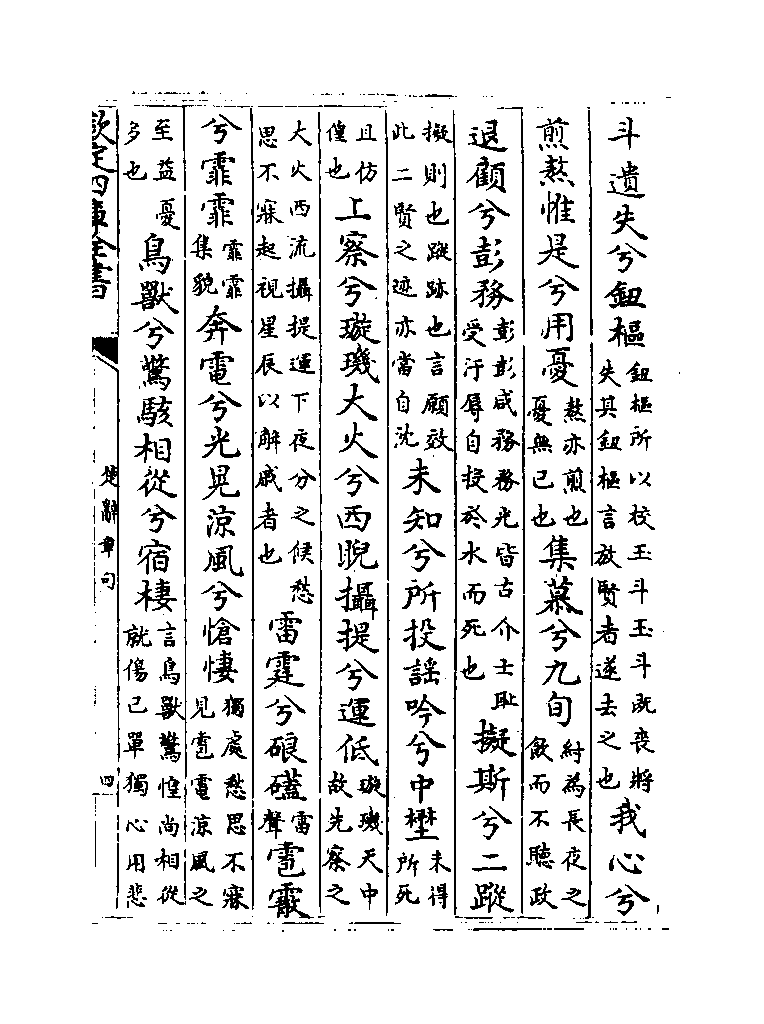 斗遺失兮鈕樞鈕樞所以校玉斗玉斗既喪將失其鈕樞言放賢者遂去之也我心兮
煎熬惟是兮用憂熬亦煎也憂無已也集慕兮九旬紂為長夜之飲而不聽政
退顧兮彭務彭彭咸務務光皆古介士恥受汙辱自投於水而死也擬斯兮二蹤
擬則也蹤跡也言願效此二賢之迹亦當自沈未知兮所投謡吟兮中壄未得所死
且仿偟也上察兮璇璣大火兮西睨攝提兮運低璇璣天中故先察之
大火西流攝提運下夜分之候愁思不寐起視星辰以解戚者也雷霆兮硠礚雷聲雹霰
兮霏霏霏霏集貌奔電兮光晃涼風兮愴悽獨處愁思不寐見雹電涼風之
至益憂多也鳥獸兮驚駭相從兮宿棲言鳥獸驚惶尚相從就傷己單獨心用悲
欽定四庫全書
楚辭章句
四